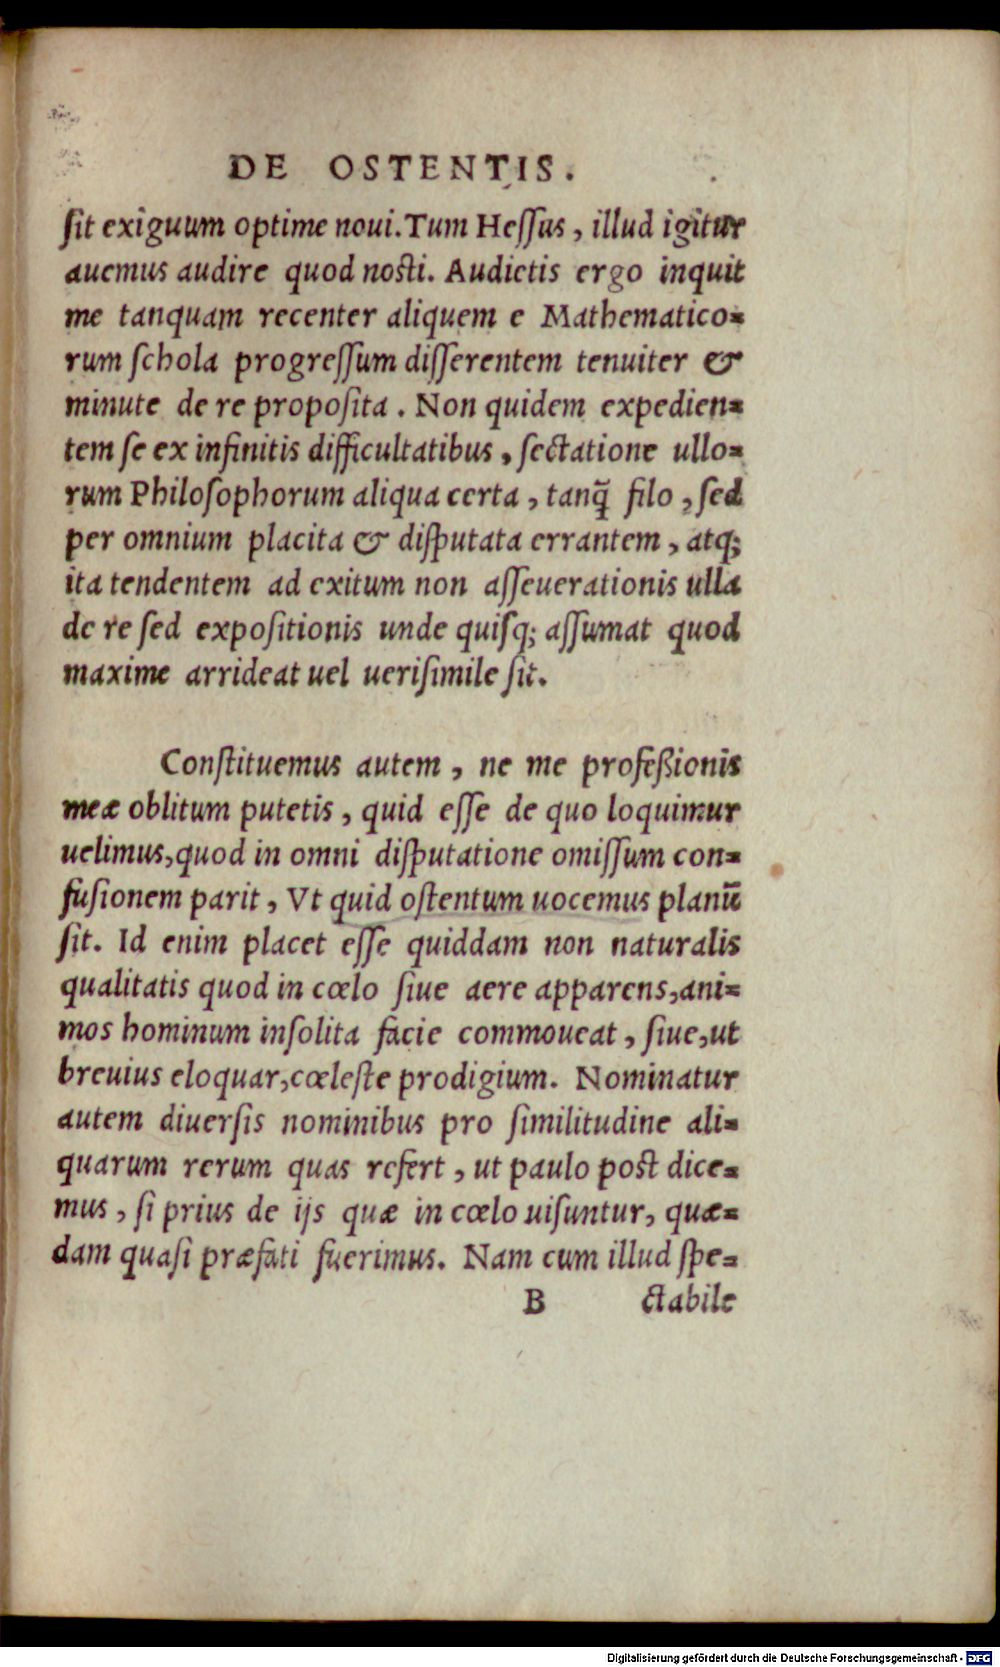 DE OSTENTIS.
ſit exiguum optime noui. Tum Heſſus, illud igitur
auemus audire quod nosti. Audietis ergo inquit
me tanquam recenter aliquem e Mathematico=
rum ſchola progreſſum diſſerentem tenuiter &
minute de re propoſita. Non quidem expedien=
tem ſe ex infinitis difficultatibus, ſectatione ullo=
rum Philoſophorum aliqua certa, tanq̃ filo, ſed
per omnium placita & diſputata errantem, atq;
ita tendentem ad exitum non aſſeuerationis ulla
de re ſed expoſitionis unde quiſq; aſſumat quod
maxime arrideat uel ueriſimile ſit.
Conſtituemus autem, ne me profeßionis
meæ oblitum putetis, quid eſſe de quo loquimur
uelimus, quod in omni diſputatione omiſſum con=
fuſionem parit, Vt quid oſtentum uocemus planũ
ſit. Id enim placet eſſe quiddam non naturalis
qualitatis quod in cœlo ſiue aere apparens, ani=
mos hominum inſolita facie commoueat, ſiue, ut
breuius eloquar, cœleſte prodigium. Nominatur
autem diuerſis nominibus pro ſimilitudine ali=
quarum rerum quas refert, ut paulo post dice=
mus, ſi prius de ijs quæ in cœlo uiſuntur, quæ=
dam quaſi præfati fuerimus. Nam cum illud ſpe=
B ctabile
Digitalisierung gefördert durch die Deutsche Forschungsgemeinschaft - DFG